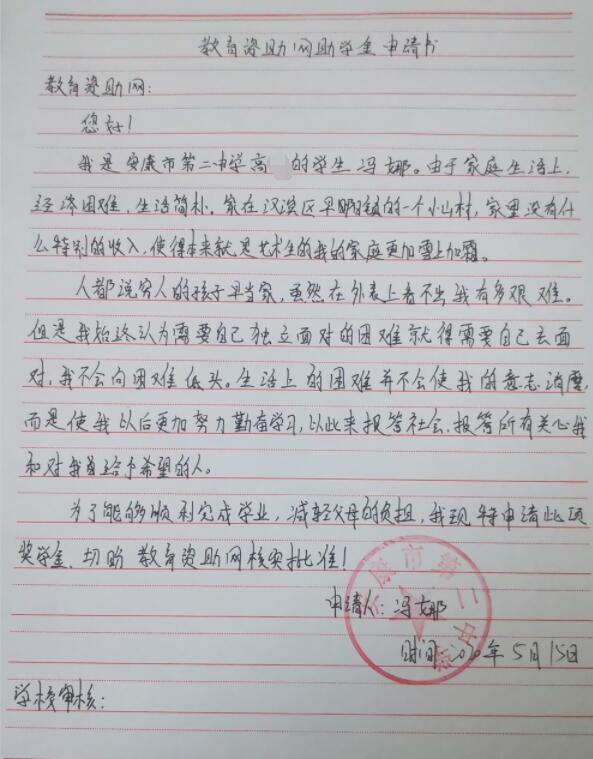 教育资助网助学金申请书
教育资助网：
您好！
我是安康市第二中学高 的学生冯娜。由于家庭生活上,
经济困难，生活简朴。家在汉滨区早阳镇的一个小山村，家里没有什
么特别的收入，使得本来就是艺术生的我的家庭更加雪上加霜。
人都说穷人的孩子早当家，虽然在外表上看不出我有多艰难。
但是我始终认为需要自己独立面对的困难就得需要自己去面
对，我不会向困难低头。生活上的困难并不会使我的意志消磨，
而是使我以后更加努力勤奋学习，以此来报答社会、报答所有关心我
和对我 给予希望的人。
为了能够顺利完成学业，减轻父母的负担，我现特申请此项
奖学金、切盼 教育资助网核实批准！
安康市第二中学
申请人：冯娜
时间 2020年5月15日
学校审核：